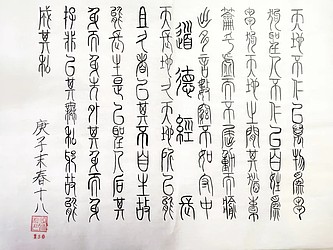 天地不仁以萬物為芻
狗聖人不仁以百姓為
芻狗天地之間其猶橐
籥乎虛而不屈動而愈
出多言數窮不如守中
道德經
天長地久天地所以能
且久者以其不自生故
能長生是以聖人后其
身而身先外其身而身
存非以其無私邪故能
成其私
庚子末春十八